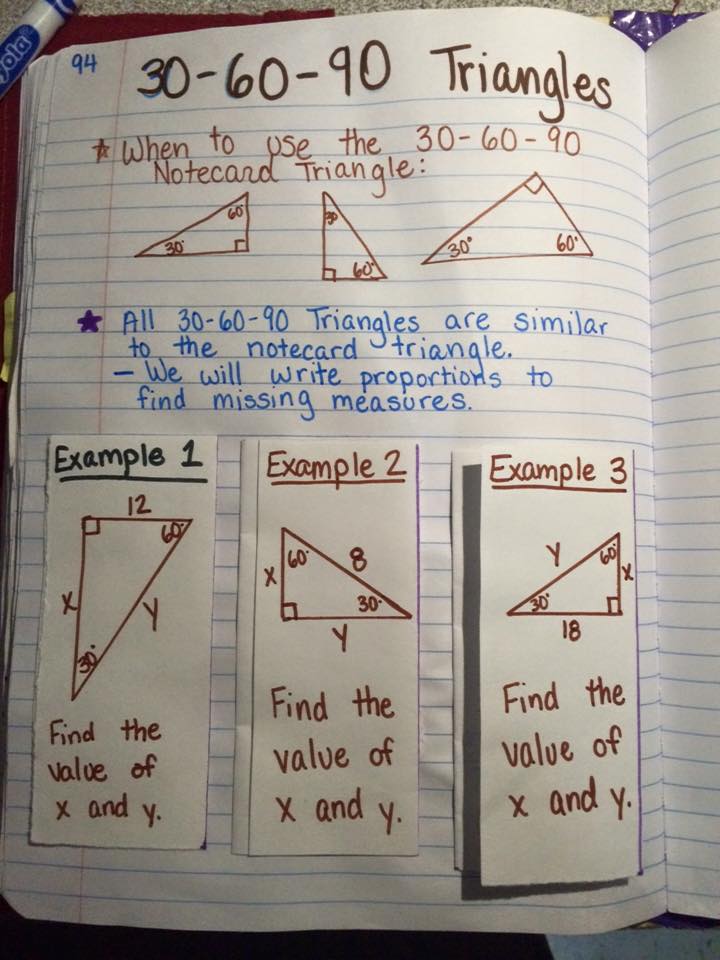 yola
94
30-60-90 Triangles
When to use the 30-60-90
Notecard Triangle:
60°
30°
30
60°
30°
60°
All 30-60-90 Triangles are similar
to the notecard triangle.
- We will write proportions to
find missing measures.
Example 1
12
60°
x
y
30°
Find the
value of
x and y.
Example 2
60°
8
x
30°
y
Find the
value of
x and y.
Example 3
y
60°
x
30°
18
Find the
value of
x and y.